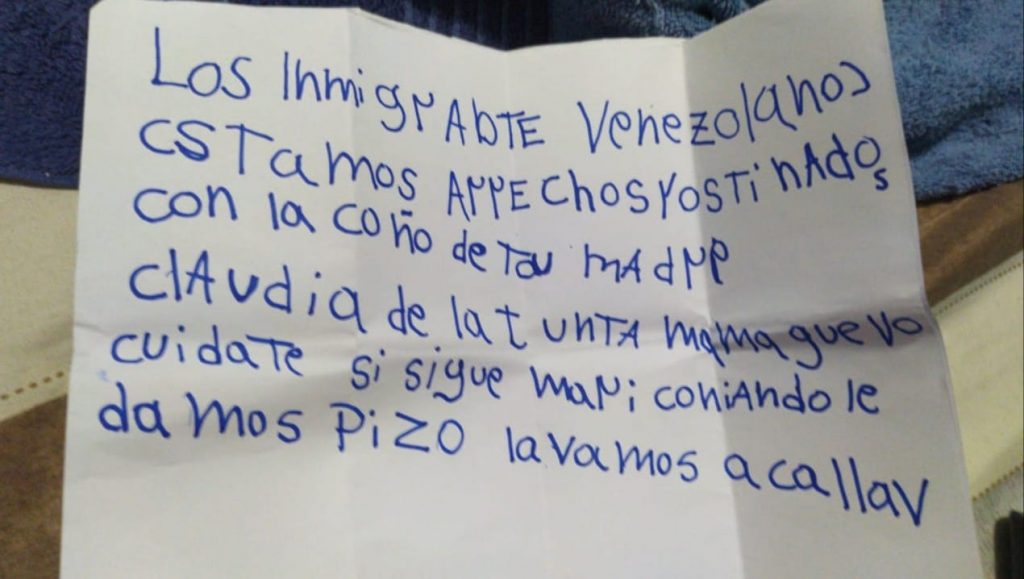 Los InmigrAbTE Venezolanos
ESTamos ArrEchosYostinAdos
con la coño de Tou mAdrr
clAudia de la t untA mamaguevo
cuidaTe si sigue mariconiAndo le
damos PiZO la vamos a callar